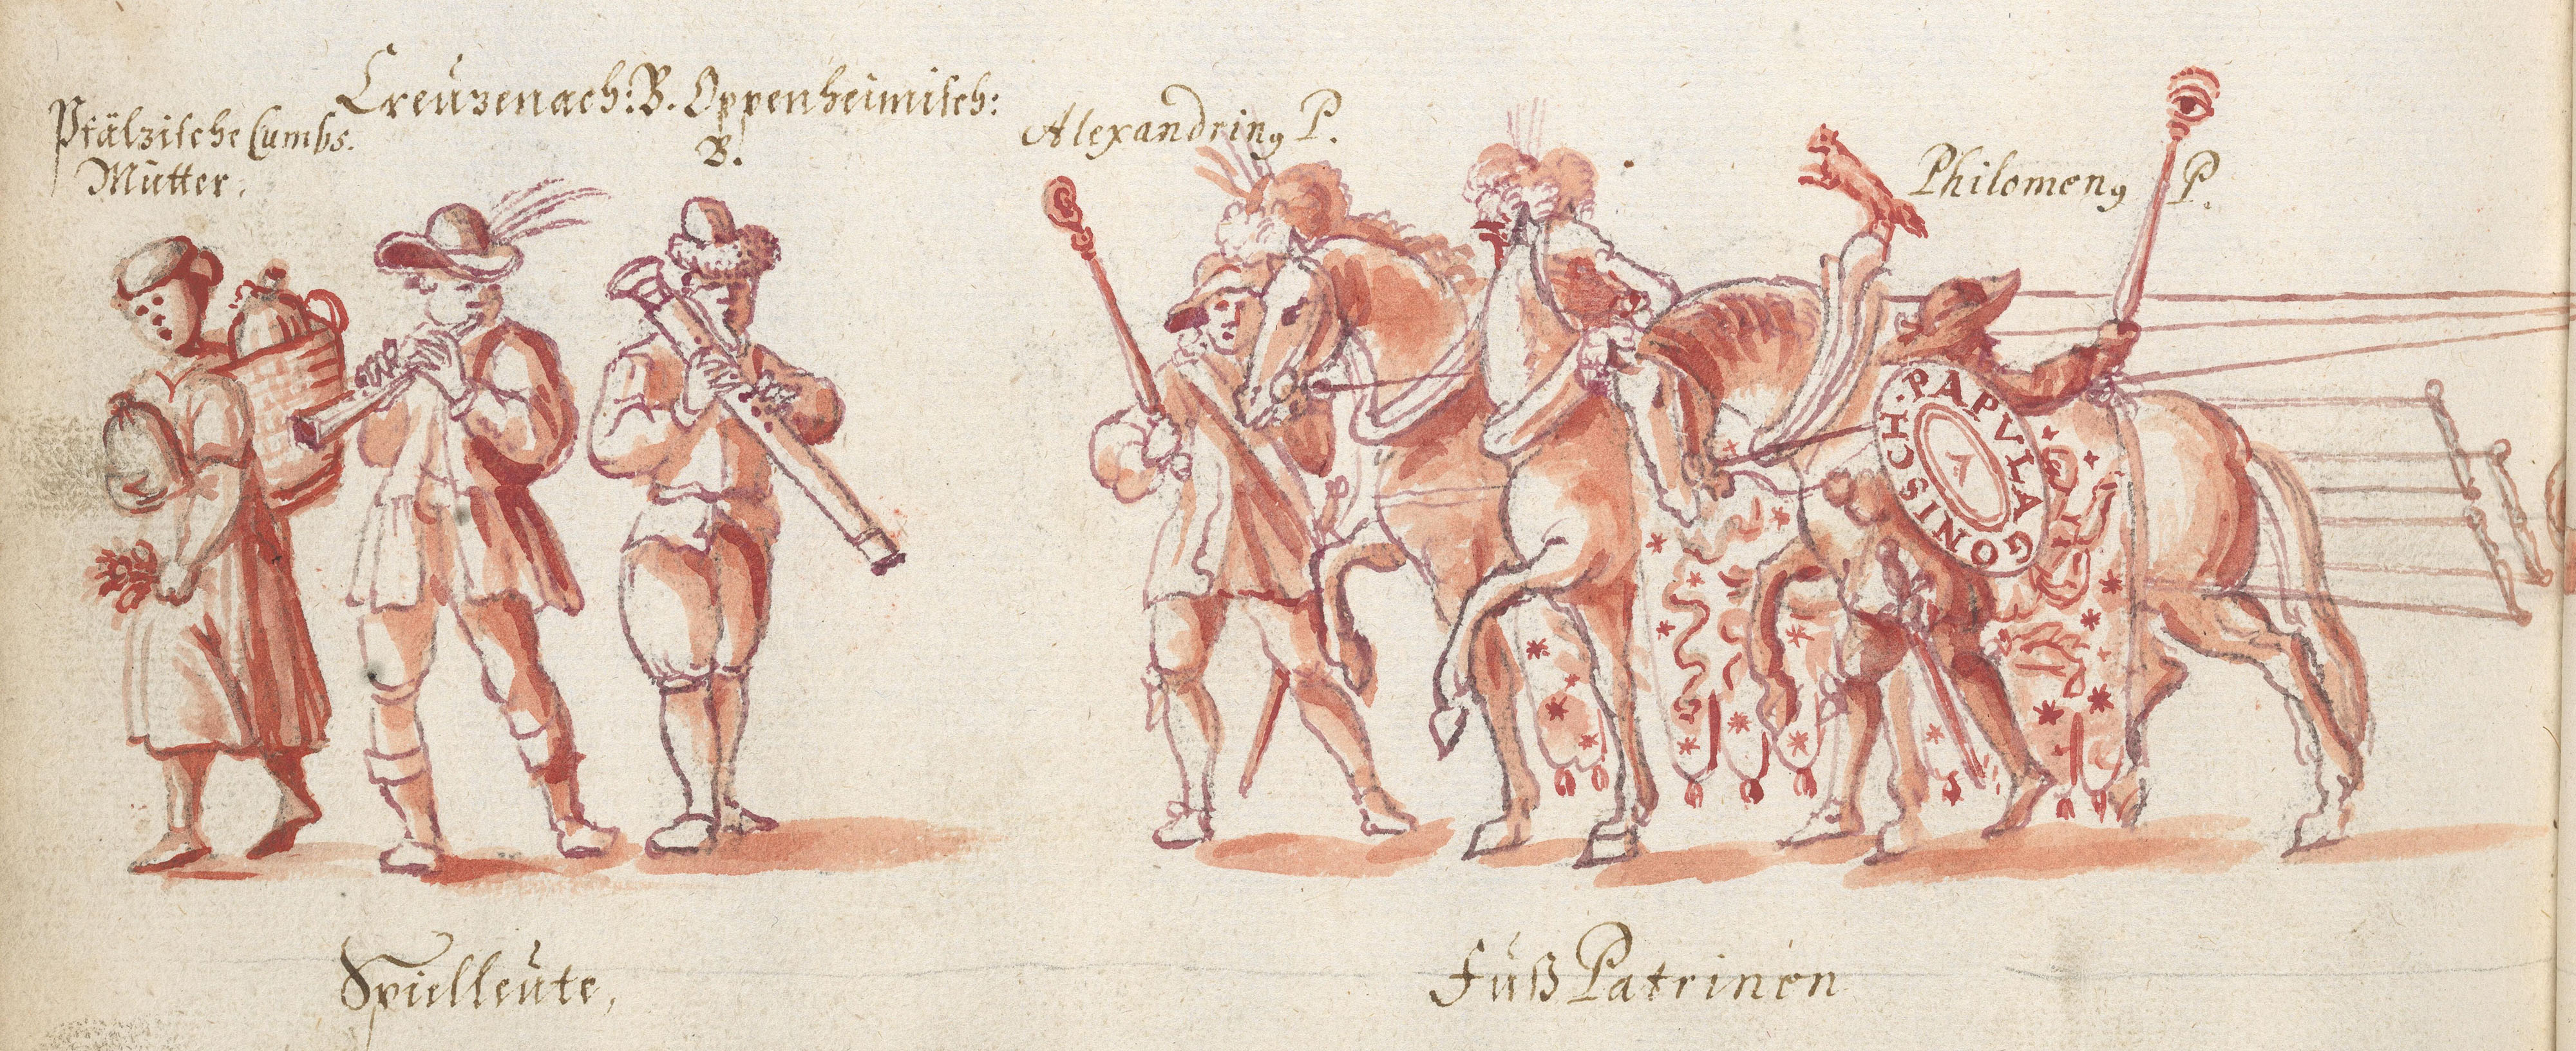 Pfälzische Cumbs.
Mutter.
Creüzenach: B. Oppenheimisch:
B.
Alexandrinꝰ P.
Philomenꝰ P.
PAPVLA
GONISSCH.
Spielleüte,
Füß Patrinen